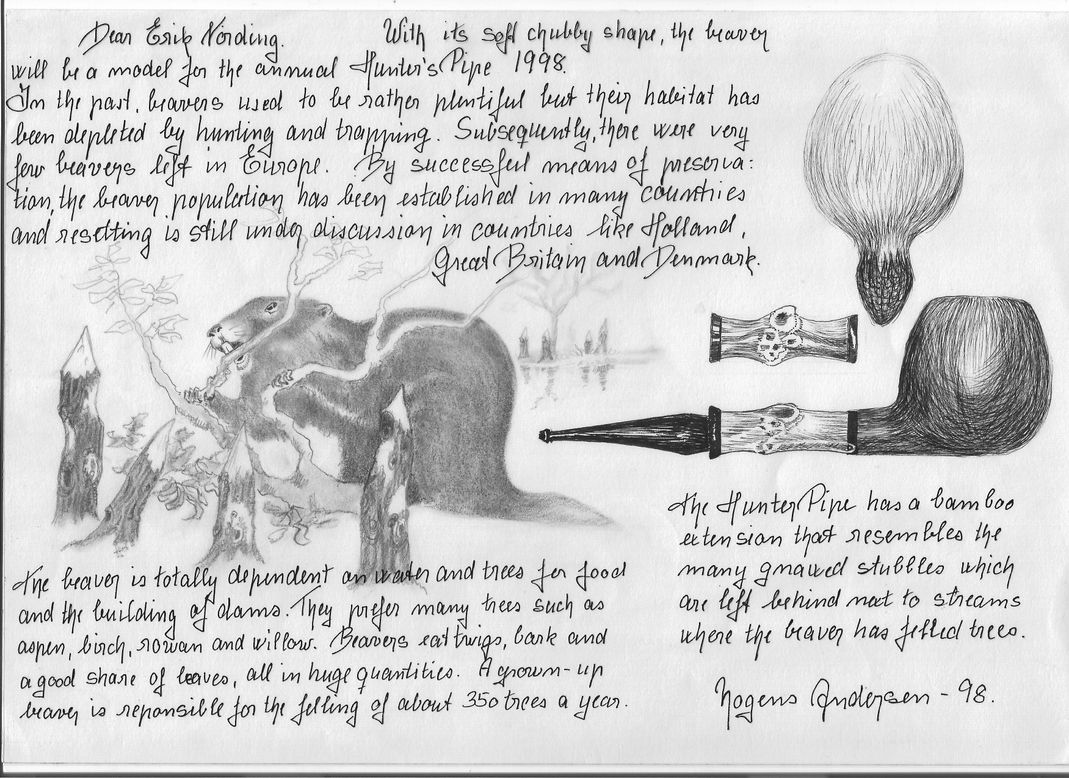 Dear Erik Nörding. With its soft chubby shape, the beaver
will be a model for the annual Hunter's Pipe 1998.
In the past, beavers used to be rather plentiful but their habitat has
been depleted by hunting and trapping. Subsequently, there were very
few beavers left in Europe. By successful means of preserva:
tion, the beaver population has been established in many countries
and resetting is still under discussion in countries like Holland,
Great Britain and Denmark.
The beaver is totally dependent on water and trees for food
and the building of dams. They prefer many trees such as
aspen, birch, rowan and willow. Beavers eat twigs, bark and
a good share of leaves, all in huge quantities. A grown-up
beaver is reponsible for the felling of about 350 trees a year.
The Hunter Pipe has a bamboo
extension that resembles the
many gnawed stubbles which
are left behind next to streams
where the beaver has felled trees.
Mogens Andersen - 98.